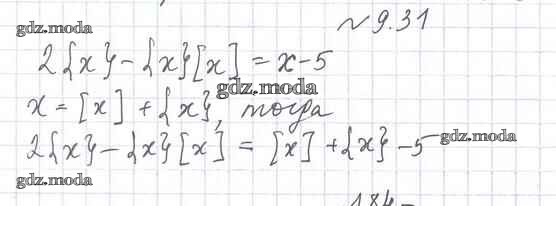 gdz.moda
№9.31
2{x}-{x}[x] = x-5
gdz.moda
x = [x] + {x}, тогда
2{x}-{x}[x] = [x]+{x}-5
gdz.moda
gdz.moda